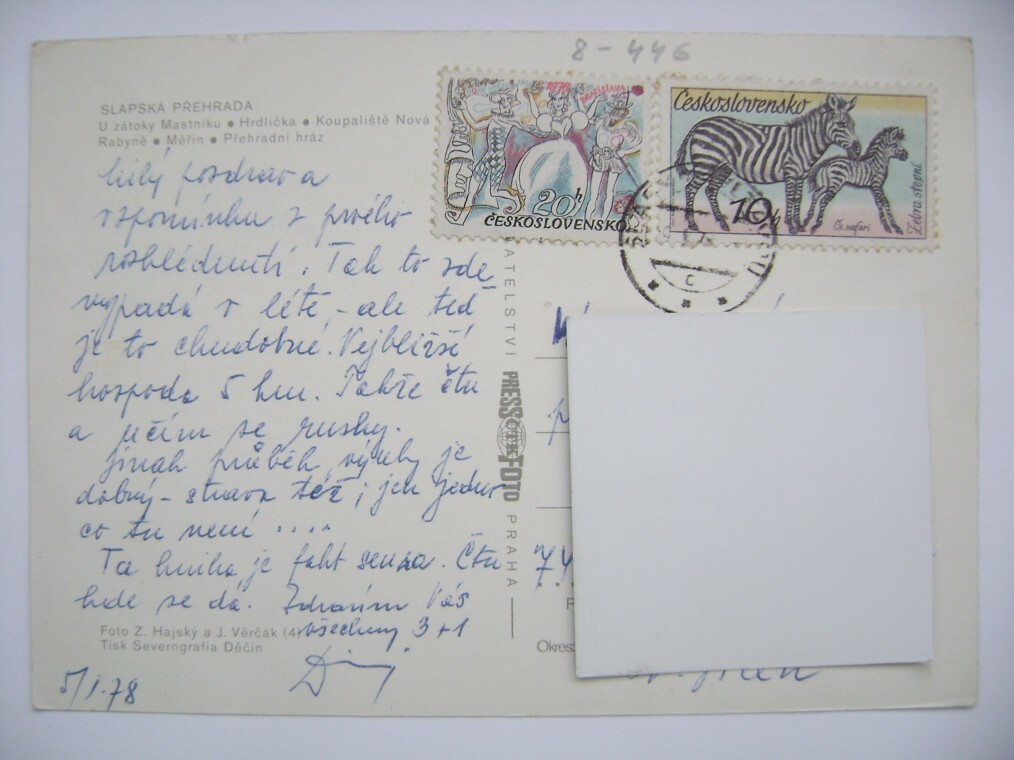 8-446
SLAPSKÁ PŘEHRADA
U zátoky Mastníku ● Hrdlička ● Koupaliště Nová
Rabyně ● Měřín ● Přehradní hráz
BRATISLAVA
20h
ČESKOSLOVENSKO
Československo
10h
Čs. safari
Zebra stepní
milý pozdrav a
vzpomínku z prvého
rozhlédnutí. Tak to zde
vypadá v létě - ale teď
je to chudobné. Nejbližší
hospoda 5 km. Takže čtu
a učím se rusky.
Jinak průběh výuky je
dobrý - strava též; jen jedno
co tu není ....
Ta kniha je fakt senza. Čtu
kde se dá. Zdravím Vás
všechny 3+1
Foto Z. Hajský a J. Věrčák (4)
Tisk Severografia Děčín
5/1.78
ATELSTVÍ PRESSFOTO PRAHA
C
74
Okres